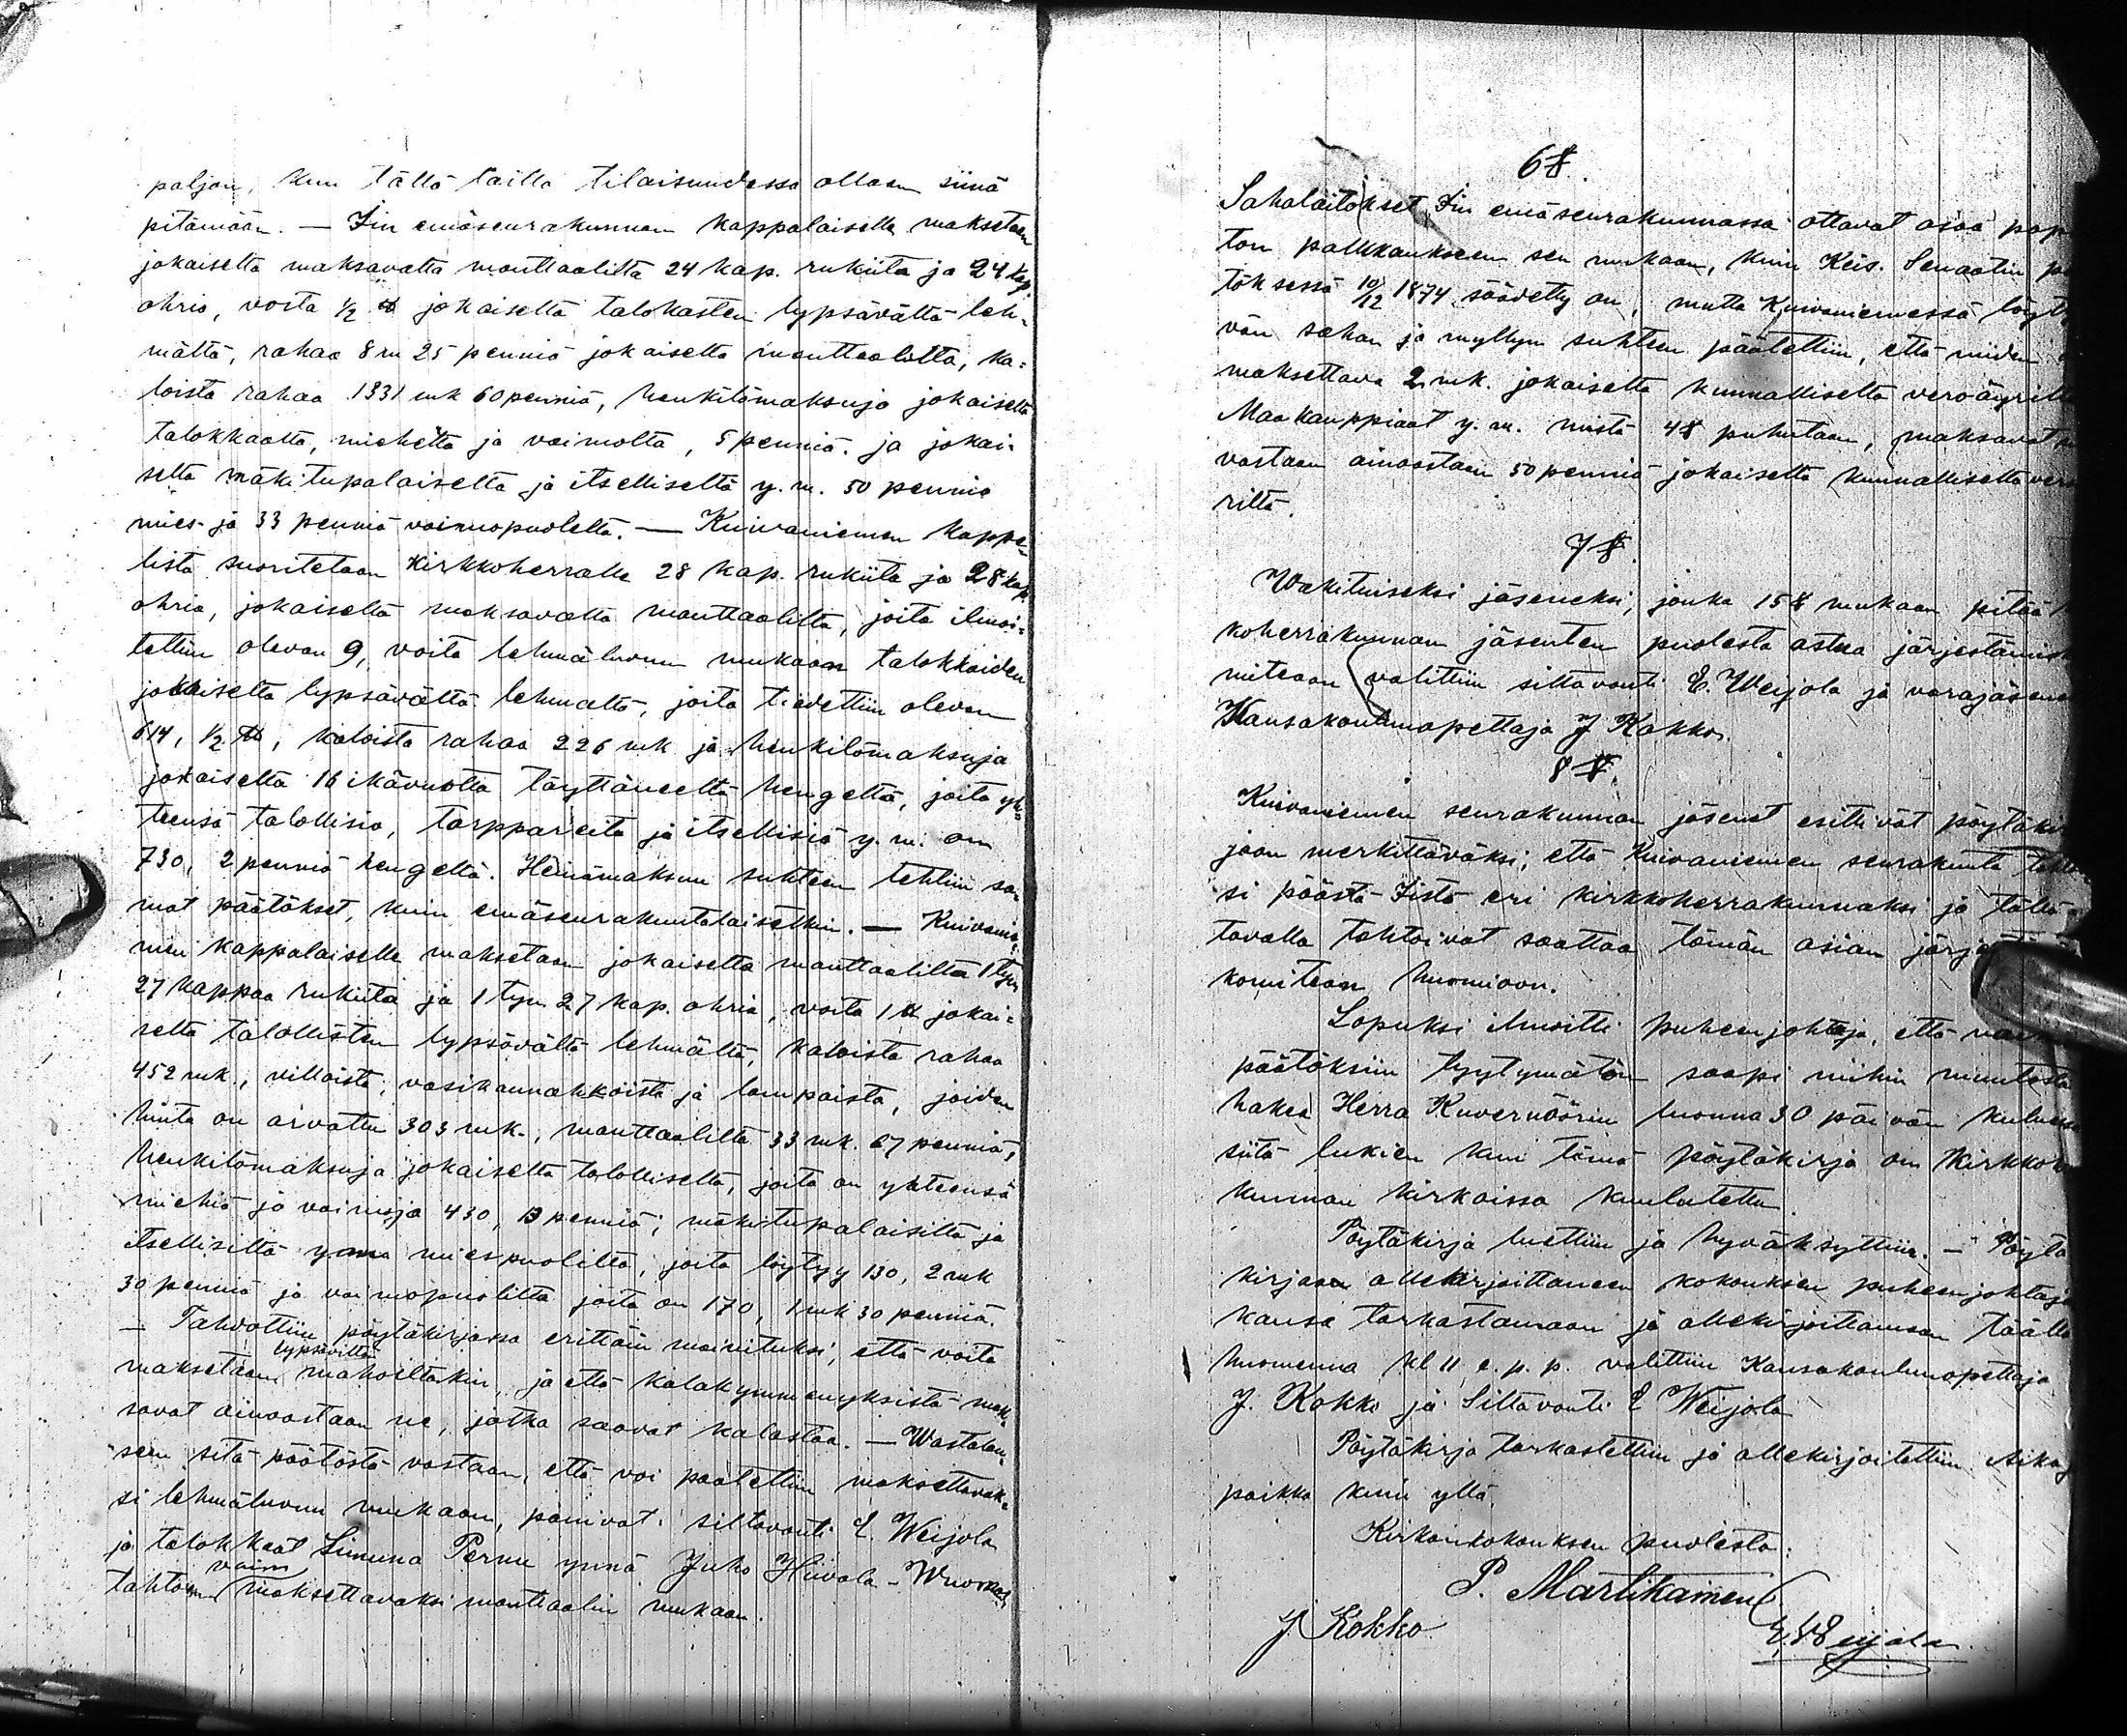 paljon, kun tällä lailla tilaisuudessa ollaan siinä
pitämään. — Iin emäseurakunnan kappalaiselle maksetaan
jokaiselta maksavalta manttaalilta 24 kap. rukiita ja 24 kap.
ohria, voita ½ ℔ jokaiselta talokasten lypsävältä leh-
mältä, rahaa 8 m 25 penniä jokaiselta manttaalilta, ka-
loista rahaa 1331 mk 60 penniä, henkilömaksuja jokaiselta
talokkaalta, mieheltä ja vaimolta, 5 penniä, ja jokai-
selta mäkitupalaiselta ja itselliseltä y. m. 50 penniä
mies- ja 33 penniä vaimopuolelta. — Kuivaniemen kappe-
lista suoritetaan Kirkkoherralle 28 kap. rukiita ja 28 kap.
ohria, jokaiselta maksavalta manttaalilta, joita ilmoi-
tettiin olevan 9, voita lehmäluvun mukaan talokkaiden
jokaiselta lypsävältä lehmältä, joita tiedettiin olevan
614, ½ ℔, kaloista rahaa 226 mk ja henkilömaksuja
jokaiselta 16 ikävuotta täyttäneeltä hengeltä, joita yh-
teensä talollisia, torppareita ja itsellisiä y. m. on
730, 2 penniä hengeltä. Heinämaksun suhteen tehtiin sa-
mat päätökset, kuin emäseurakuntalaisetkin. — Kuivanie-
men kappalaiselle maksetaan jokaiselta manttaalilta 1 tyn
27 kappaa rukiita ja 1 tyn 27 kap. ohria, voita 1 ℔ jokai-
selta talollisten lypsävältä lehmältä, kaloista rahaa
452 mk., villoista, vasikannahkoista ja lampaista, joiden
hinta on arvattu 303 mk., manttaalilta 33 mk. 67 penniä,
henkilömaksuja jokaiselta talolliselta, joita on yhteensä
miehiä ja vaimoja 430, 13 penniä; mäkitupalaisilta ja
itsellisiltä y.m. miespuolilta, joita löytyy 130, 2 mk
30 penniä ja vaimopuolilta joita on 170, 1 mk 30 penniä.
— Tahdottiin pöytäkirjassa erittäin mainituksi, että voita
lypsäviltä
maksetaan mahoiltakin, ja että kalakymmenyksistä mak-
savat ainoastaan ne, jotka saavat kalastaa. — Wastalau-
seen sitä päätöstä vastaan, että voi päätettiin maksettavak-
si lehmäluvun mukaan, panivat siltavouti E. Weijola
ja talokkaat Simuna Pernu ynnä Juho Hiivala-Wuornos
voin
tahtoen maksettavaksi manttaalin mukaan.
6 §.
Sahalaitokset Iin emäseurakunnassa ottavat osaa pap
ton palkkaukseen sen mukaan, kuin Keis. Senaatin pä
töksessä 10/12 1874 säädetty on, mutta Kuivaniemessä löyt
vän sahan ja myllyn suhteen päätettiin, että niiden
maksettava 2 mk. jokaiselta kunnalliselta veroäyrilt
Maakauppiaat y. m. mistä 4 § puhutaan, maksavat
vastaan ainoastaan 50 penniä jokaiselta kunnalliselta verö
riltä.
7 §.
Wakituiseksi jäseneksi, jonka 15 § mukaan pitää
koherrakunnan jäsenten puolesta astua järjestämis
miteaan valittiin siltavouti E. Weijola ja varajäsene
Kansakoulunopettaja J Kokko.
8 §.
Kuivaniemen seurakunnan jäsenet esittivät pöytäkir
jaan merkittäväksi, että Kuivaniemen seurakunta tahto
si päästä Iistä eri kirkkoherrakunnaksi ja tällä
tavalla tahtoivat saattaa tämän asian järjest
komitean huomioon.
Lopuksi ilmoitti puheenjohtaja, että
päätöksiin tyytymätön saapi niihin muutosta
hakea Herra Kuvernöörin luonna 30 päivän kulues
siitä lukien kun tämä pöytäkirja on Kirkkoh
kunnan kirkoissa kuulutettu.
Pöytäkirja luettiin ja hyväksyttiin. — Pöytä
kirjaa allekirjoittaneen kokouksen puheenjohtaja
kansa tarkastamaan ja allekirjoittamaan täällä
huomenna kl 11 e. p. p. valittiin Kansakoulunopettaja
J. Kokko ja Siltavouti E Weijola
Pöytäkirja tarkastettiin ja allekirjoitettiin Aika j
paikka kuin yllä.
Kirkonkokouksen puolesta:
P. Martikainen
J. Kokko
E. Weijola